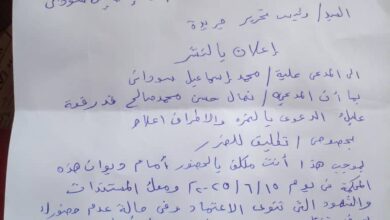 السيد/ رئيس تحرير جريدة
إعلان بالنشر
الى المدعى عليه/ محمد إسماعيل سوداني
بما أن المدعي/ نضال حسن محمد صالح قد رفعة
عليك الدعوى بالنمره والاطراف اعلاه
بخصوص/ تطليق للضرر
بموجب هذا أنت مكلف بالحضور أمام ديوان هذه
المحكمة من يوم ٢٠٢٥/٦/١٥ ومعك المستندات
والشهود التي تنوى الاعتماد وفى حالة عدم حضورك